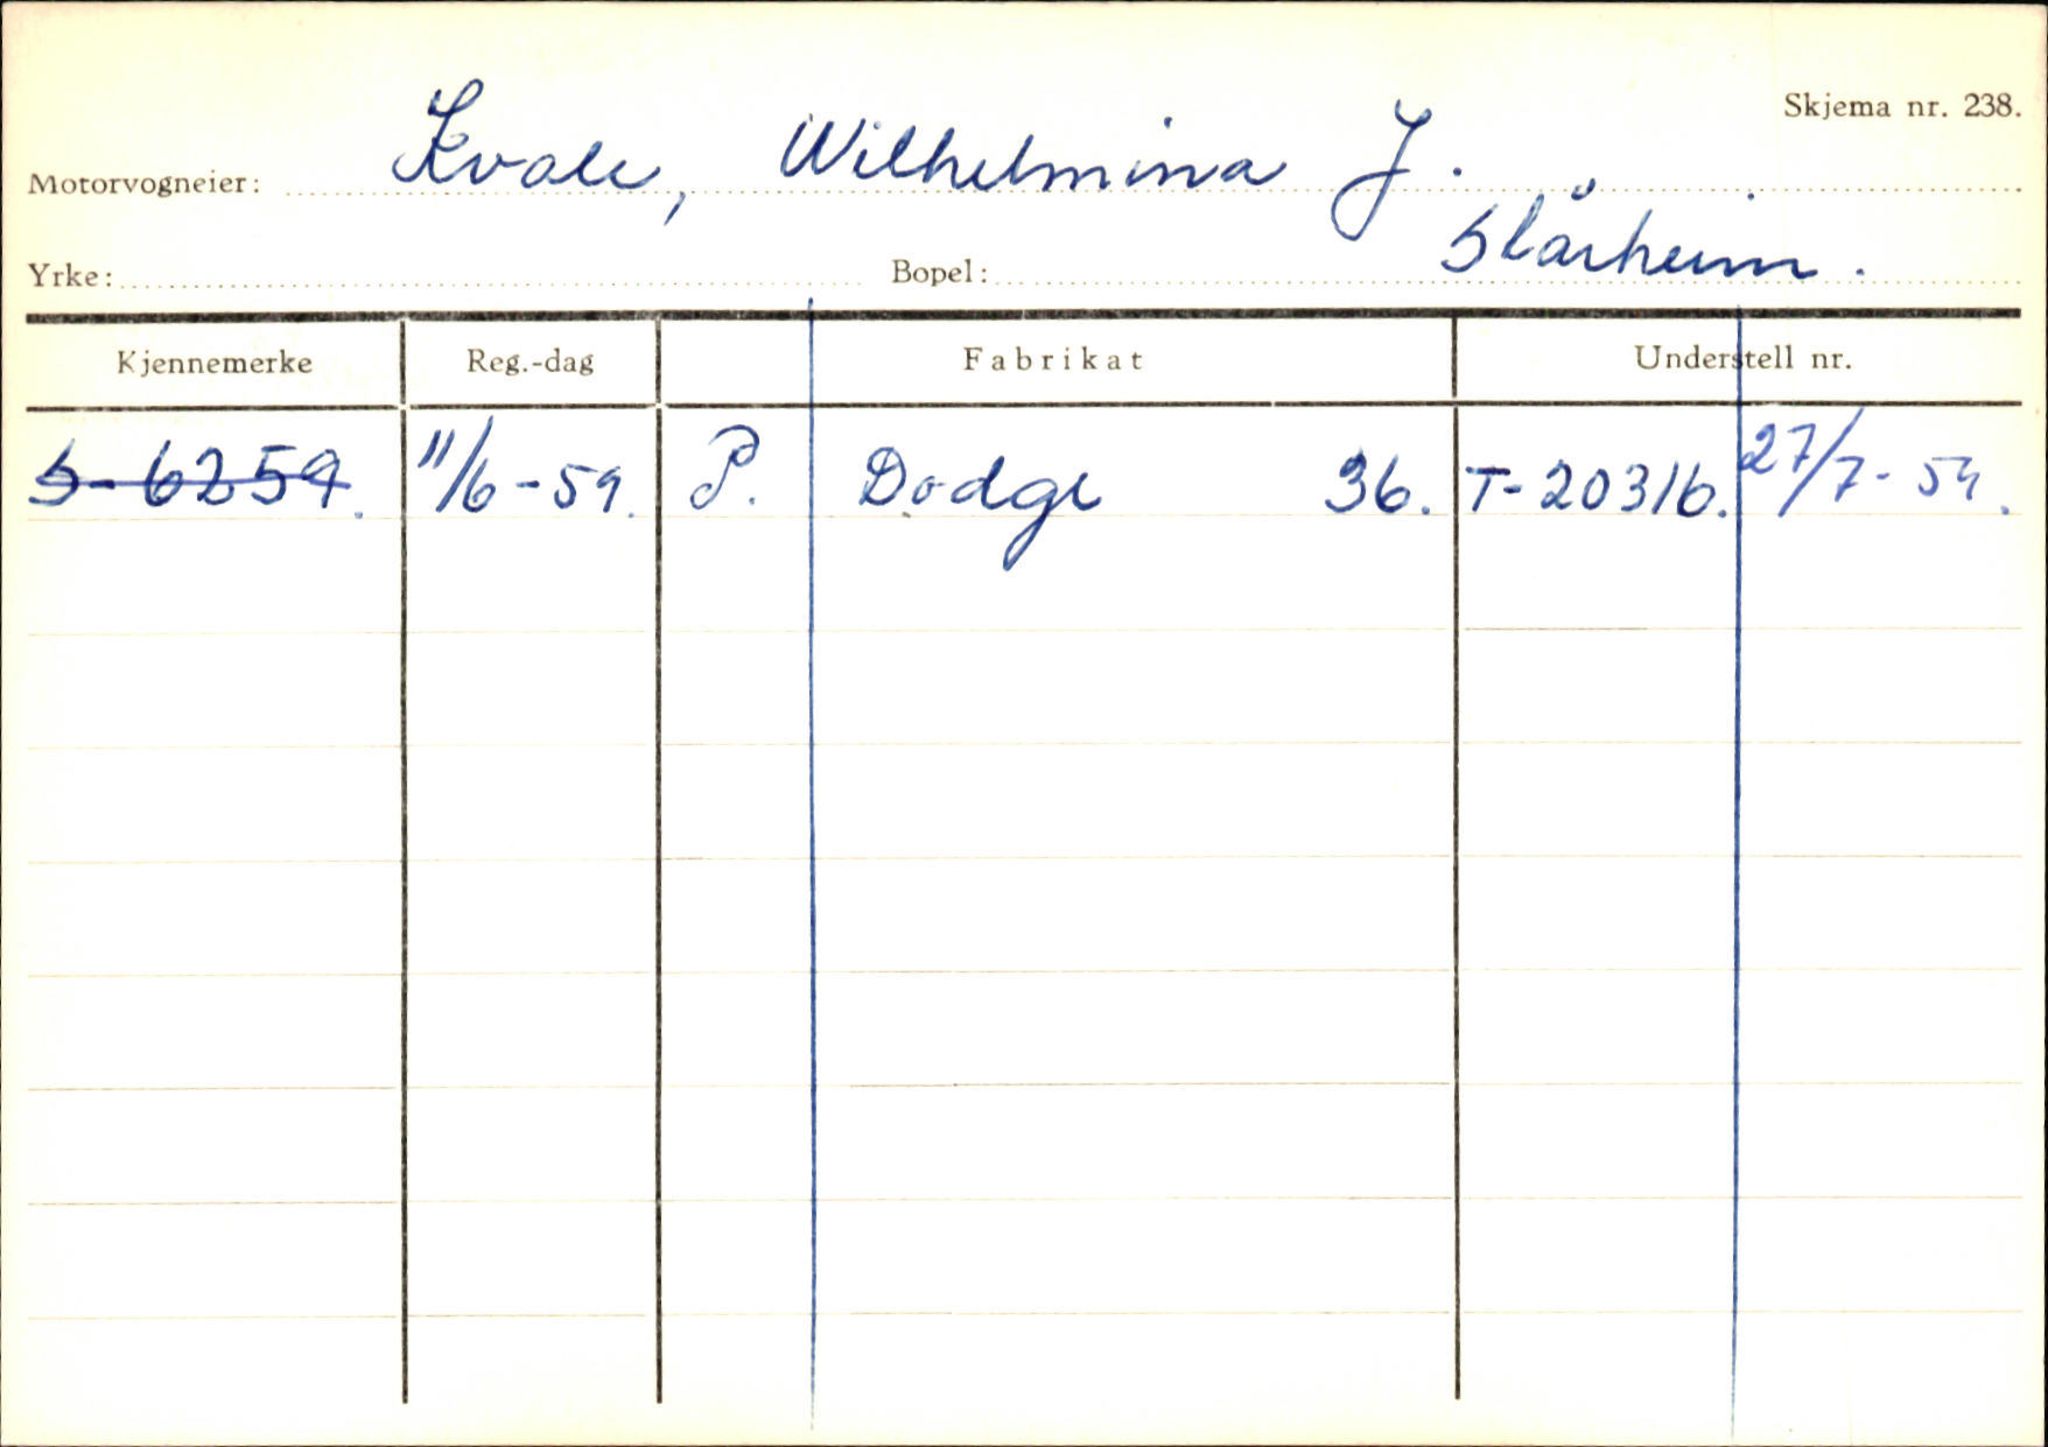 Skjema nr. 238.
Motorvogneier: Kvale, Wilhelmina J.
Yrke: Bopel: Slårheim.
Kjennemerke Reg.-dag Fabrikat Understell nr.
S-6259. 11/6-59. P. Dodge 36. T-20316. 27/7-59.